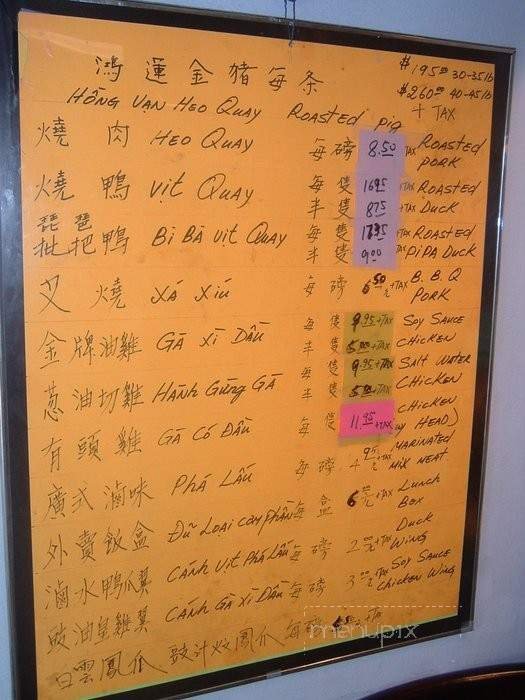 鴻運金豬每条 $195.00 30-35 lb
$260.00 40-45 lb
HỒNG VẠN HEO QUAY ROASTED PIG + TAX
燒肉 HEO QUAY 每磅 8.50 TAX ROASTED PORK
燒鴨 VỊT QUAY 每隻 +TAX ROASTED
半隻 +TAX DUCK
琵琶
鴨 Bi BÀ VỊT QUAY 每隻 +TAX ROASTED
半隻 9.00 TAX PIPA DUCK
叉燒 XÁ XÍU 每磅 6.50 +TAX B.B.Q PORK
金牌油雞 GÀ XÌ DẦU 每隻 9.95 +TAX SOY SAUCE
半隻 5.00 +TAX CHICKEN
葱油切雞 HÀNH GỪNG GÀ 每隻 9.95 +TAX SALT WATER
半隻 5.00 +TAX CHICKEN
有頭雞 GÀ CÓ ĐẦU 每隻 11.95 +TAX CHICKEN
HEAD)
廣式滷味 PHÁ LẤU 每磅 4.95 +TAX MARINATED MIX MEAT
外賣飯盒 ĐỦ LOẠI CƠM PHẦN 每盒 6.00 +TAX LUNCH BOX
滷水鴨爪翼 CÁNH VỊT PHÁ LẤU 每磅 2.00 +TAX DUCK WING
豉油皇雞翼 CÁNH GÀ XÌ DẦU 每磅 3.00 +TAX SOY SAUCE CHICKEN WING
白雲鳳爪 豉汁炆鳳爪 每磅 +TAX
menupix